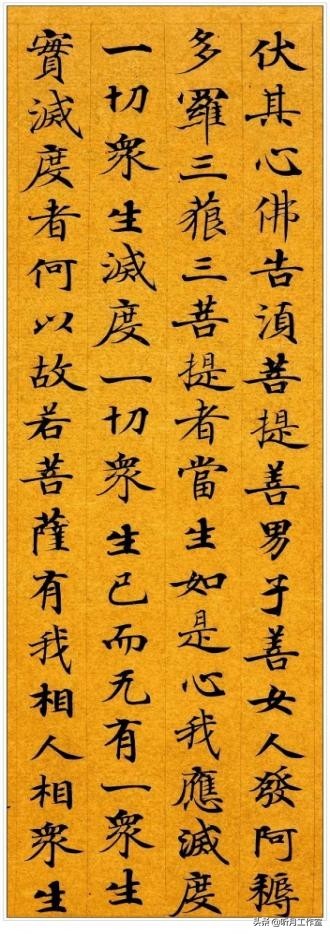 伏其心佛告湏菩提善男子善女人發阿耨
多羅三藐三菩提者當生如是心我應滅度
一切衆生滅度一切衆生已而无有一衆生
實滅度者何以故若菩薩有我相人相衆生
头条 @昕月工作室